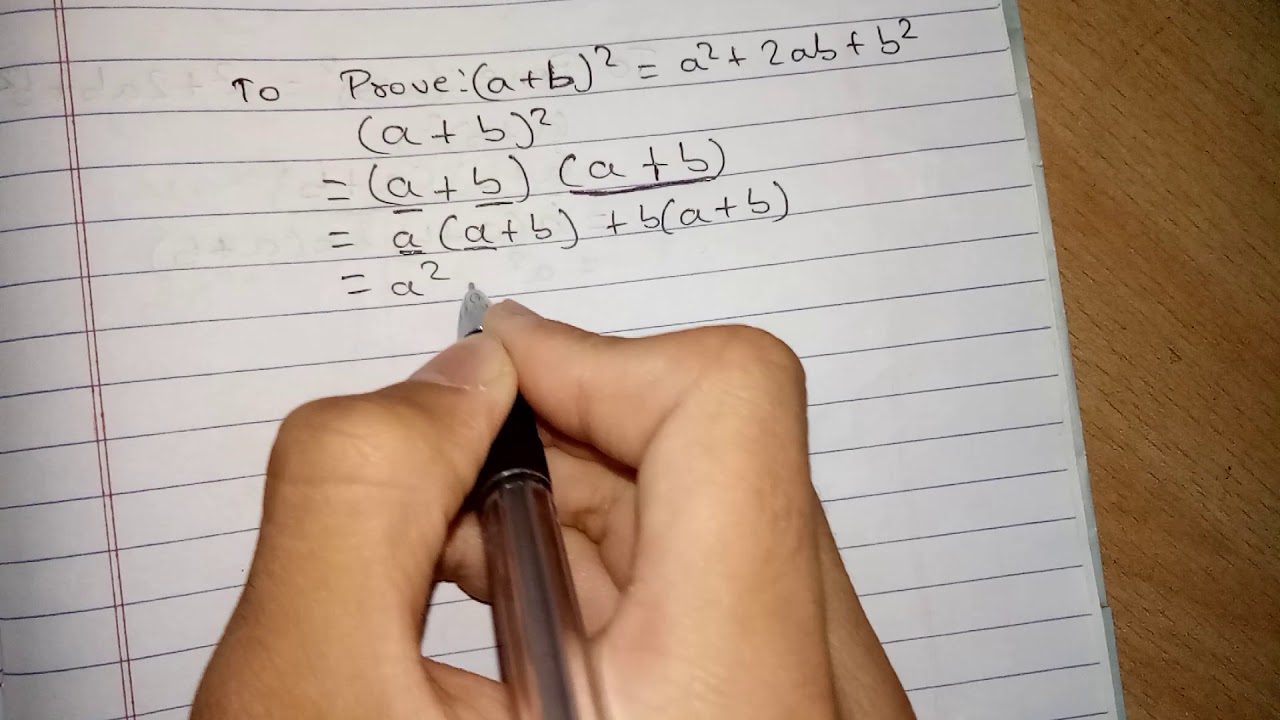 To Prove: (a+b)² = a² + 2ab + b²
(a + b)²
= (a + b) (a + b)
= a (a + b) + b(a + b)
= a²